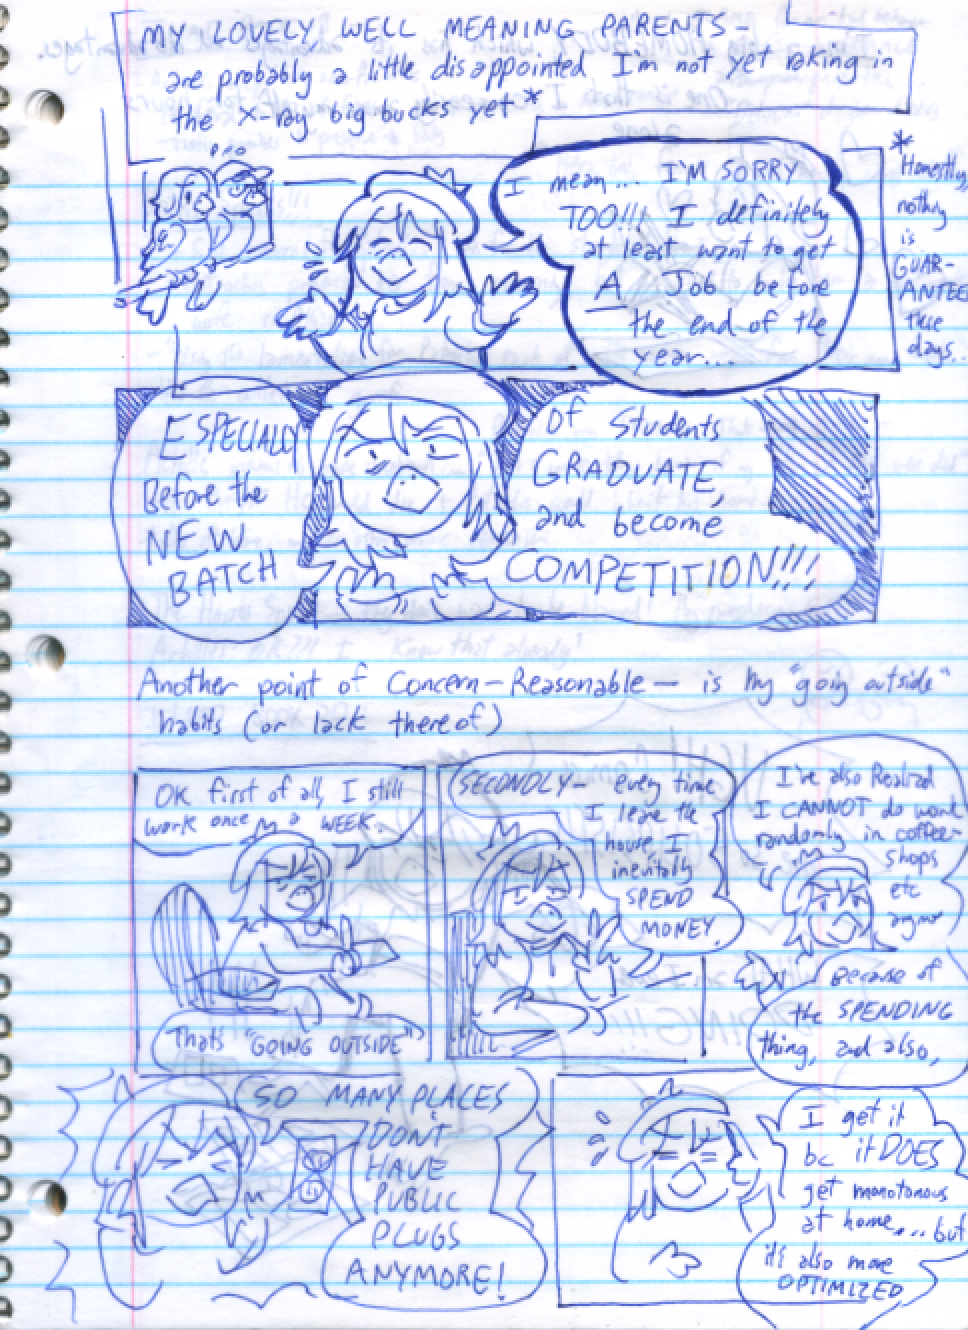 MY LOVELY WELL MEANING PARENTS -
are probably a little disappointed I'm not yet raking in
the X-ray big bucks yet *
* Honestly,
nothing
is
GUAR-
ANTEED
these
days..
I mean... I'M SORRY
TOO!!! I definitely
at least want to get
A Job before
the end of the
year...
ESPECIALLY
Before the
NEW
BATCH
Of Students
GRADUATE,
and become
COMPETITION!!!
Another point of Concern - Reasonable - is my "going outside"
habits (or lack thereof)
OK first of all, I still
work once a WEEK.
Thats "GOING OUTSIDE"
SECONDLY - every time
I leave the
house I
inevitably
SPEND
MONEY.
I've also Realized
I CANNOT do work
randomly in coffee-
shops
etc
Because of
the SPENDING
thing, and also,
SO MANY PLACES
DONT
HAVE
PUBLIC
PLUGS
ANYMORE!
I get it
bc it DOES
get monotonous
at home... but
it's also more
OPTIMIZED